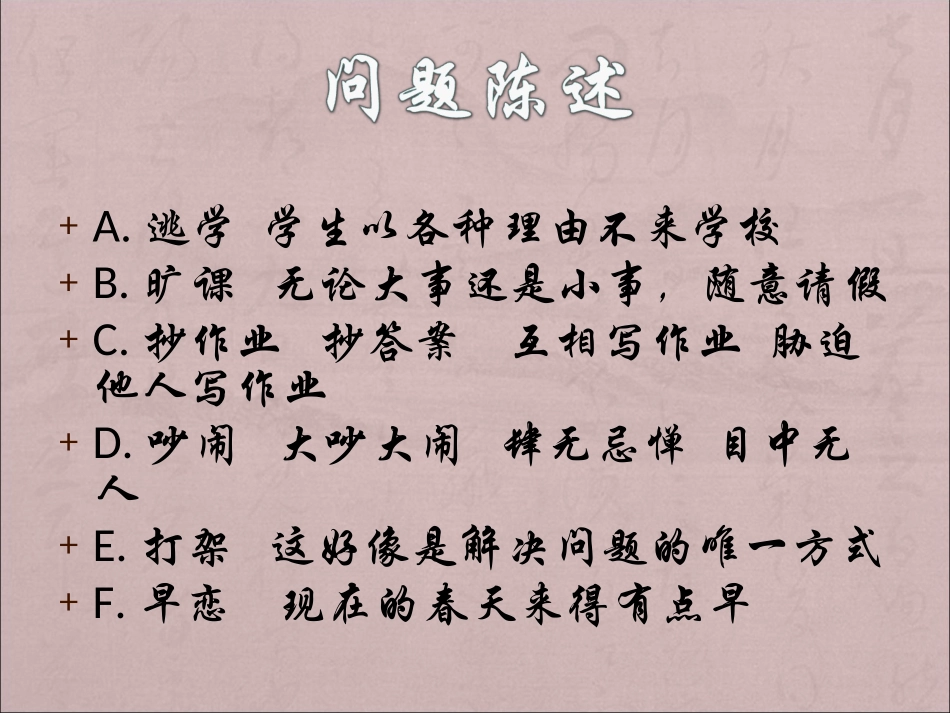 问题陈述
+ A. 逃学 学生以各种理由不来学校
+ B. 旷课 无论大事还是小事，随意请假
+ C. 抄作业 抄答案 互相写作业 胁迫
他人写作业
+ D. 吵闹 大吵大闹 肆无忌惮 目中无
人
+ E. 打架 这好像是解决问题的唯一方式
+ F. 早恋 现在的春天来得有点早